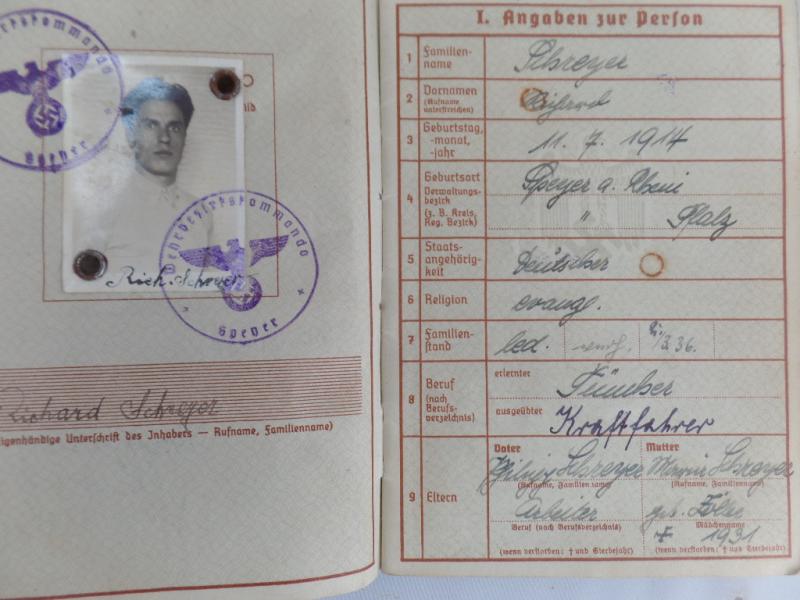 Wehrbezirkskommando
Speyer
Wehrbezirkskommando
Speyer
Rich. Schreyer
Richard Schreyer
(Eigenhändige Unterschrift des Inhabers — Rufname, Familienname)
I. Angaben zur Person
1 Familien-
name
Schreyer
2 Vornamen
(Rufname
unterstreichen)
Richard
3 Geburtstag,
-monat,
-jahr
11. 7. 1914
4 Geburtsort
Verwaltungs-
bezirk
(z. B. Kreis,
Reg. Bezirk)
Speyer a. Rhein
" Pfalz
5 Staats-
angehörig-
keit
Deutscher
6 Religion
evang.
7 Familien-
stand
led. verh. 36.
8 Beruf
(nach
Berufs-
verzeichnis)
erlernter
Tüncher
ausgeübter
Kraftfahrer
9 Eltern
Vater Mutter
Schreyer Schreyer
(Rufname, Familienname) (Rufname, Familienname)
Arbeiter geb.
Beruf (nach Berufsverzeichnis) Mädchenname
† 1931
(wenn verstorben: † und Sterbejahr) (wenn verstorben: † und Sterbejahr)